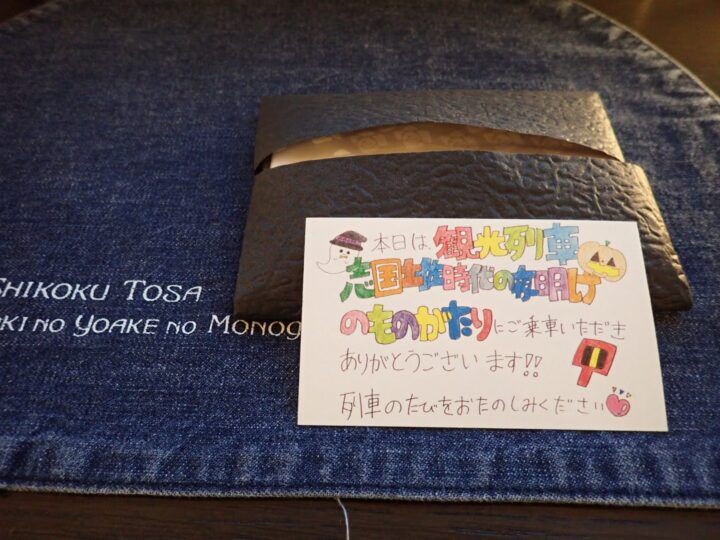 SHIKOKU TOSA
KI NO YOAKE NO MONOG
本日は、観光列車
志国土佐時代の夜明け
のものがたりにご乗車いただき
ありがとうございます!!
列車のたびをおたのしみください